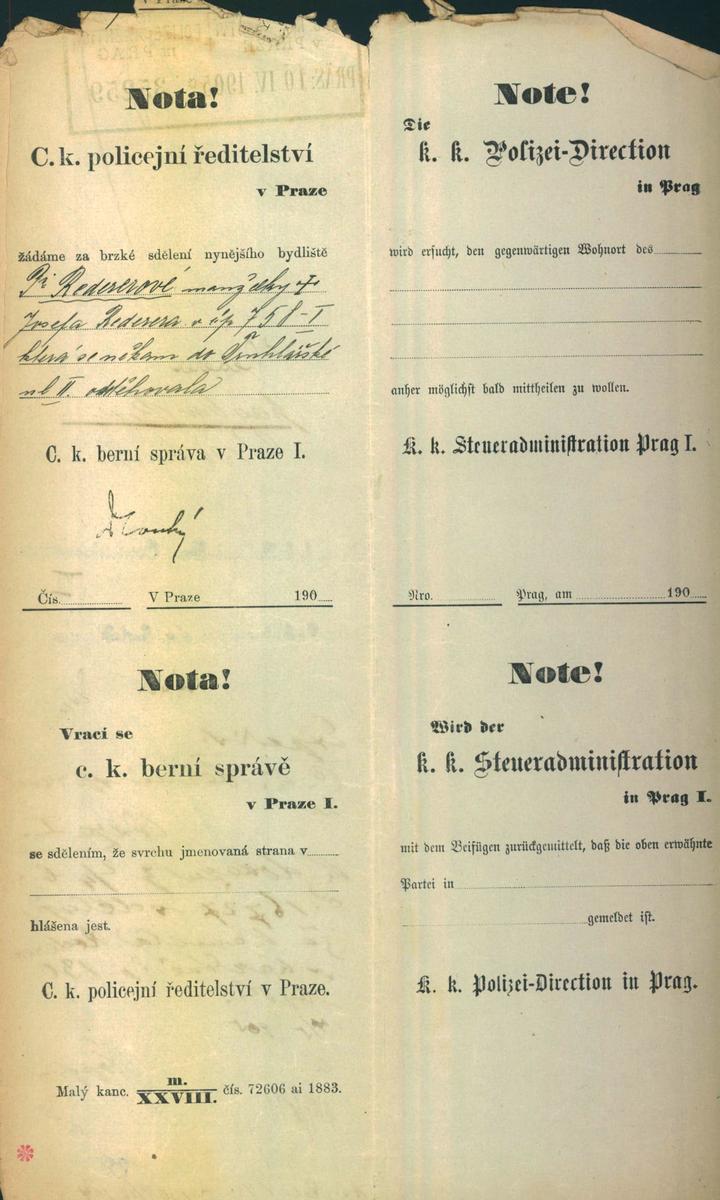 Nota!
C. k. policejní ředitelství
v Praze
žádáme za brzké sdělení nynějšího bydliště
Pí Redererové manželky
Josefa Rederera v čp 758-I
která se někam do Truhlářské
ul II. odstěhovala
C. k. berní správa v Praze I.
Čís. V Praze 190
Nota!
Vrací se
c. k. berní správě
v Praze I.
se sdělením, že svrchu jmenovaná strana v
hlášena jest.
C. k. policejní ředitelství v Praze.
Malý kanc. m. XXVIII. čís. 72606 ai 1883.
Note!
Die
k. k. Polizei-Direction
in Prag
wird ersucht, den gegenwärtigen Wohnort des
anher möglichst bald mittheilen zu wollen.
K. k. Steueradministration Prag I.
Nro. Prag, am 190
Note!
Wird der
k. k. Steueradministration
in Prag I.
mit dem Beifügen zurückgemittelt, daß die oben erwähnte
Partei in
gemeldet ist.
K. k. Polizei-Direction in Prag.